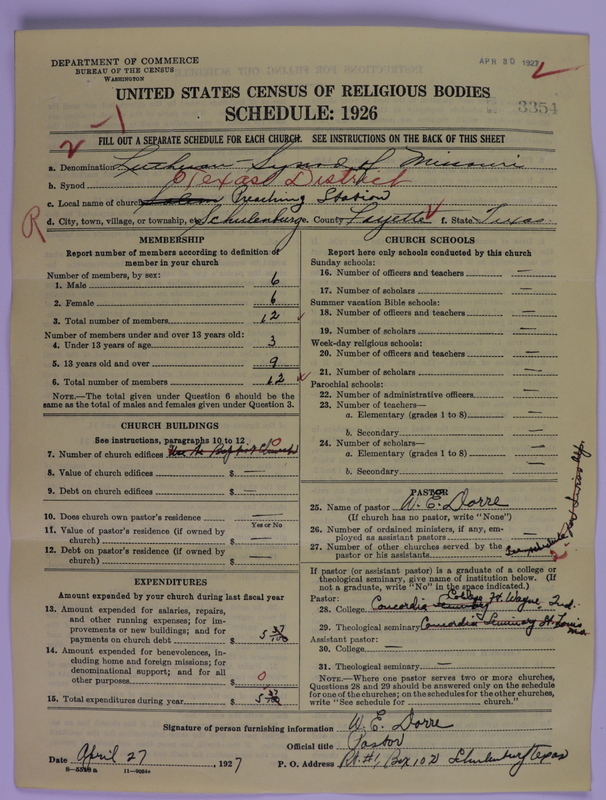 DEPARTMENT OF COMMERCE
BUREAU OF THE CENSUS
WASHINGTON
APR 30 1927
UNITED STATES CENSUS OF RELIGIOUS BODIES
SCHEDULE: 1926
3354
2 - 1
FILL OUT A SEPARATE SCHEDULE FOR EACH CHURCH. SEE INSTRUCTIONS ON THE BACK OF THIS SHEET
a. Denomination Lutheran Synod of Missouri
b. Synod Texas District
c. Local name of church Salem Preaching Station
R
d. City, town, village, or township, etc. Schulenburg e. County Fayette f. State Texas
MEMBERSHIP
Report number of members according to definition of
member in your church
Number of members, by sex:
1. Male 6
2. Female 6
3. Total number of members 12
Number of members under and over 13 years old:
4. Under 13 years of age 3
5. 13 years old and over 9
6. Total number of members 12
NOTE.—The total given under Question 6 should be the
same as the total of males and females given under Question 3.
CHURCH BUILDINGS
See instructions, paragraphs 10 to 12
7. Number of church edifices Use the Baptist Church 0
8. Value of church edifices $ —
9. Debt on church edifices $ —
10. Does church own pastor's residence —
Yes or No
11. Value of pastor's residence (if owned by
church) $ —
12. Debt on pastor's residence (if owned by
church) $ —
EXPENDITURES
Amount expended by your church during last fiscal year
13. Amount expended for salaries, repairs,
and other running expenses; for im-
provements or new buildings; and for
payments on church debt $ 5 37/100
14. Amount expended for benevolences, in-
cluding home and foreign missions; for
denominational support; and for all
other purposes $ 0
15. Total expenditures during year $ 5 37/100
CHURCH SCHOOLS
Report here only schools conducted by this church
Sunday schools:
16. Number of officers and teachers —
17. Number of scholars —
Summer vacation Bible schools:
18. Number of officers and teachers —
19. Number of scholars —
Week-day religious schools:
20. Number of officers and teachers —
21. Number of scholars —
Parochial schools:
22. Number of administrative officers —
23. Number of teachers—
a. Elementary (grades 1 to 8) —
b. Secondary —
24. Number of scholars—
a. Elementary (grades 1 to 8) —
b. Secondary —
PASTOR
25. Name of pastor W. E. Dorre
(If church has no pastor, write "None")
26. Number of ordained ministers, if any, em-
ployed as assistant pastors —
27. Number of other churches served by the
pastor or his assistants
If pastor (or assistant pastor) is a graduate of a college or
theological seminary, give name of institution below. (If
not a graduate, write "No" in the space indicated.)
Pastor:
28. College Concordia College Ft. Wayne, Ind.
29. Theological seminary Concordia Seminary St. Louis
Mo.
Assistant pastor:
30. College —
31. Theological seminary —
NOTE.—Where one pastor serves two or more churches,
Questions 28 and 29 should be answered only on the schedule
for one of the churches; on the schedules for the other churches,
write "See schedule for church."
Signature of person furnishing information W. E. Dorre
Official title Pastor
Date April 27, 1927
P. O. Address Rt. #1, Box 102 Schulenburg Texas
11-9024